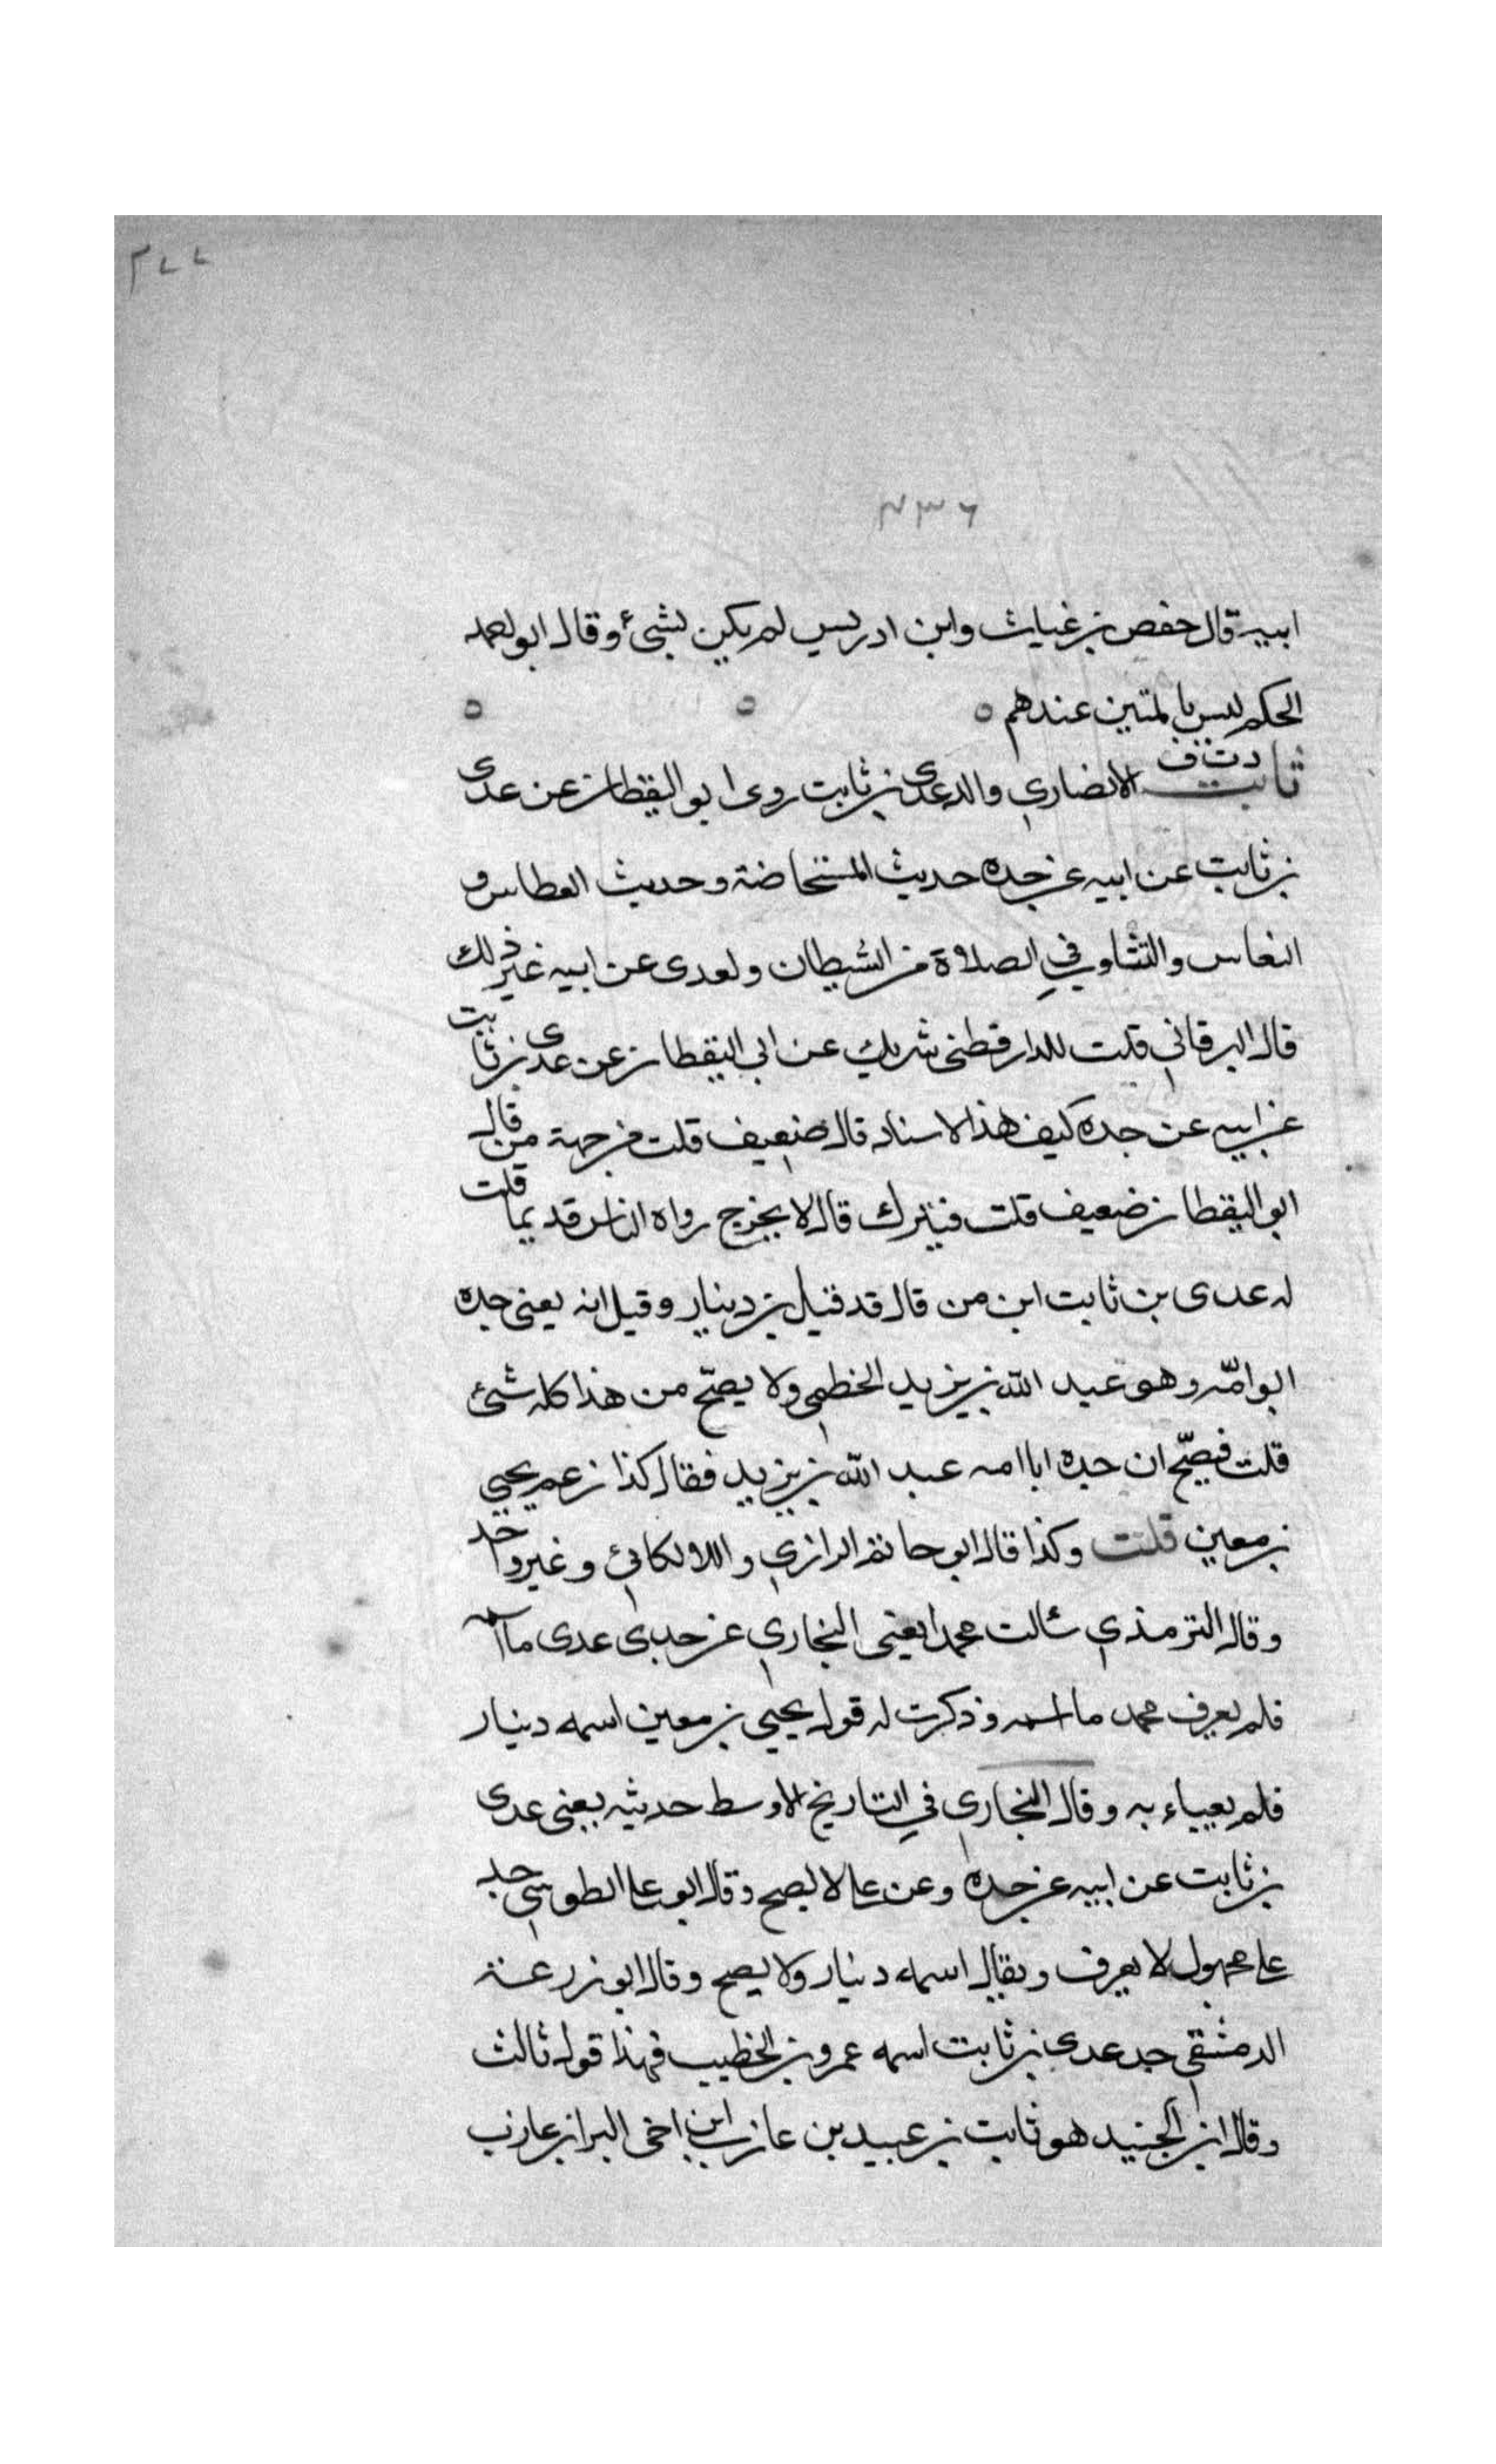 ٢٧٧
٢٣٦
ابيه قال حفص بن غياث وابن ادريس لم يكن بشئ وقال ابو احمد
الحكم ليس بالمتين عندهم ٥ ٥ ٥
دت ق
ثابت الانصاري والد عدى بن ثابت روى ابو اليقظان عن عدى
بن ثابت عن ابيه عن جده حديث المستحاضة وحديث العطاس و
النعاس والتثاوب في الصلاة من الشيطان ولعدى عن ابيه غير ذلك
قال البرقاني قلت للدارقطنى شريك عن ابي اليقظان عن عدى بن ثابت
عن ابيه عن جده كيف هذا الاسناد قال ضعيف قلت من جهة من قال
ابو اليقظان ضعيف قلت فيترك قال لا يخرج رواه الناس قديما قلت
له عدى بن ثابت ابن من قال قد قيل بن دينار وقيل انه يعنى جده
ابو امّه وهو عبد الله بن يزيد الخطمي ولا يصحّ من هذا كله شئ
قلت فيصحّ ان جده ابا امه عبد الله بن يزيد فقال كذا زعم يحيى
بن معين قلت وكذا قال ابو حاتم الرازي واللالكائئ وغير واحد
وقال الترمذي سألت محمدا يعنى البخاري عن جد عدى ما اسمه
فلم يعرف محمد ما اسمه وذكرت له قول يحيى بن معين اسمه دينار
فلم يعباء به وقال البخاري في التاريخ الاوسط حديثه يعنى عدى
بن ثابت عن ابيه عن جده وعن على لا يصح وقال ابو على الطوسي جد
على مجهول لا يعرف ويقال اسمه دينار ولا يصح وقال ابو زرعة
الدمشقي جد عدى بن ثابت اسمه عمرو بن الخطيب فهذا قول ثالث
وقال ابن الجنيد هو ثابت بن عبيد بن عازب ابن اخى البرا بن عازب